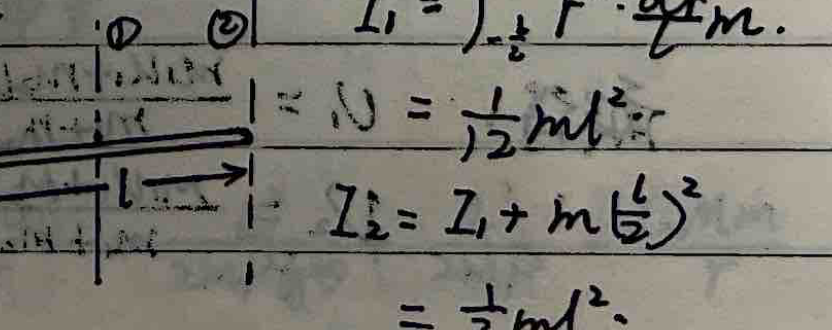 ① ②
I₁ = ∫_{-l/2} r · dr/l m.
= 1/12 ml²
l
I₂ = I₁ + m(l/2)²
= 1/3 ml².